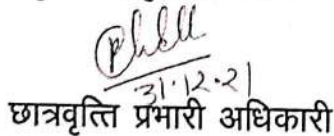 31.12.21
छात्रवृत्ति प्रभारी अधिकारी